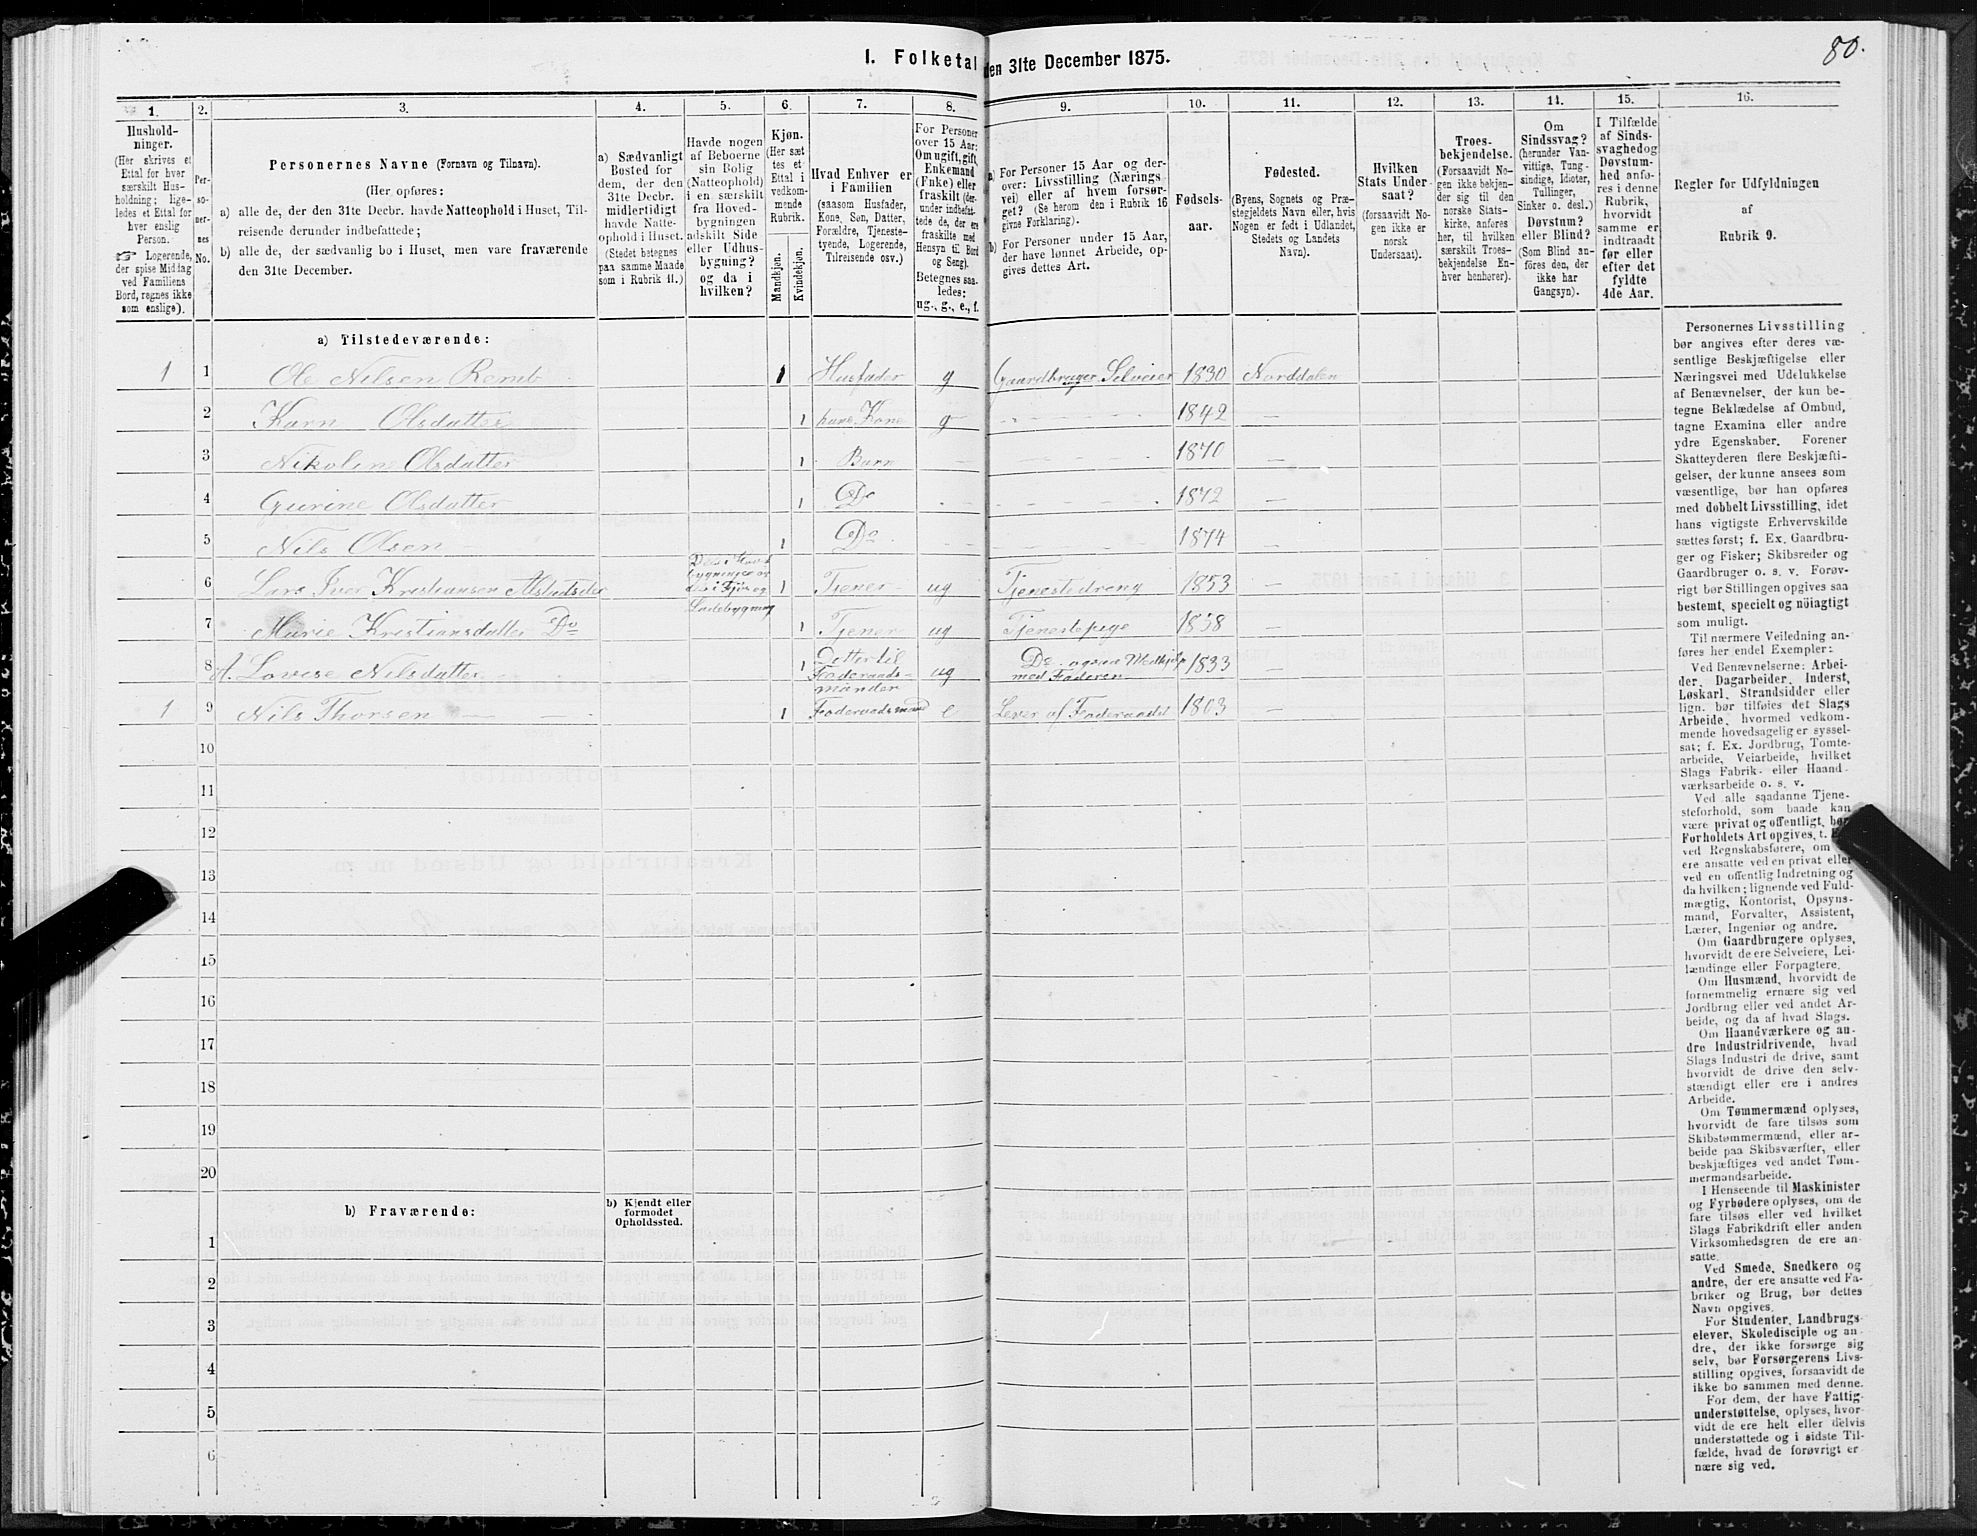 80.
I. Folketal den 31te December 1875.
1.
2.
3.
4.
5.
6.
7.
8.
9.
10.
11.
12.
13.
14.
15.
16.
Hushold-
ninger.
(Her skrives et
Ettal for hver
særskilt Hus-
holdning; lige-
ledes et Ettal for
hver enslig
Person.
☞ Logerende,
der spise Middag
ved Familiens
Bord, regnes ikke
som enslige).
Per-
so-
ner-
nes
No.
Personernes Navne (Fornavn og Tilnavn).
(Her opføres:
a) alle de, der den 31te Decbr. havde Natteophold i Huset, Til-
reisende derunder indbefattede;
b) alle de, der sædvanlig bo i Huset, men vare fraværende
den 31te December.
a) Sædvanligt
Bosted for
dem, der den
31te Decbr.
midlertidigt
havde Natte-
ophold i Huset.
(Stedet betegnes
paa samme Maade
som i Rubrik 11.)
Havde nogen
af Beboerne
sin Bolig
(Natteophold)
i en særskilt
fra Hoved-
bygningen
adskilt Side
eller Udhus-
bygning?
og da i
hvilken?
Kjøn.
(Her sæt
tes et
Ettal i
vedkom-
mende
Rubrik.
Mandkjøn.
Kvindekjøn.
Hvad Enhver er
i Familien
(saasom Husfader,
Kone, Søn, Datter,
Forældre, Tjeneste-
tyende, Logerende,
Tilreisende osv.)
For Personer
over 15 Aar:
Om ugift, gift,
Enkemand
(Enke) eller
fraskilt (der-
under indbefat-
tede de, der ere
fraskilte med
Hensyn til Bord
og Seng).
Betegnes saa-
ledes:
ug., g., e., f.
a) For Personer 15 Aar og der-
over: Livsstilling (Nærings
vei) eller af hvem forsør-
get? (Se herom den i Rubrik 16
givne Forklaring).
b) For Personer under 15 Aar,
der have lønnet Arbeide, op-
gives dettes Art.
Fødsels-
aar.
Fødested.
(Byens, Sognets og Præ-
stegjeldets Navn eller, hvis
Nogen er født i Udlandet,
Stedets og Landets
Navn).
Hvilken
Stats Under
saat?
(forsaavidt No-
gen ikke er
norsk
Undersaat).
Troes-
bekjendelse.
(Forsaavidt No-
gen ikke bekjen-
der sig til den
norske Stats-
kirke, anføres
her, til hvilken
særskilt Troes-
bekjendelse En-
hver henhører).
Om
Sindssvag?
(herunder Van-
vittige, Tung-
sindige, Idioter,
Tullinger,
Sinker o. desl.)
Døvstum?
eller Blind?
(Som Blind an-
føres den, der
ikke har
Gangsyn).
I Tilfælde
af Sinds-
svaghedog
Døvstum-
hed anfø-
res i denne
Rubrik,
hvorvidt
samme er
indtraadt
før eller
efter det
fyldte
4de Aar.
Regler for Udfyldningen
af
Rubrik 9.
a) Tilstedeværende:
1 1 Ole Nilsen Remb 1 Husfader g Gaardbruger Selveier 1830 Norddalen
2 Karn Olsdatter 1 hans Kone g 1842 —
3 Nikoline Olsdatter 1 Barn 1870 —
4 Gurine Olsdatter 1 Do 1872 —
5 Nils Olsen 1 Do 1874 —
6 Lars Iver Kristiansen 1 Tjener ug Tjenestedreng 1853 —
Ladebygning
7 Marie Kristiansdatter Do 1 Tjener ug Tjenestepige 1858 —
8 A. Lovise Nilsdatter 1 Datter til Foderaads-manden ug Do med Faderen 1833 —
1 9 Nils Thorsen 1 Foderaadsmand e Lever af Foderaadet 1803 —
10
11
12
13
14
15
16
17
18
19
20
b) Fraværende:
b) Kjendt eller
formodet
Opholdssted.
1
2
3
4
5
6
Personernes Livsstilling
bør angives efter deres væ-
sentlige Beskjæftigelse eller
Næringsvei med Udelukkelse
af Benævnelser, der kun be-
tegne Beklædelse af Ombud,
tagne Examina eller andre
ydre Egenskaber. Forener
Skatteyderen flere Beskjæfti-
gelser, der kunne ansees som
væsentlige, bør han opføres
med dobbelt Livsstilling, idet
hans vigtigste Erhvervskilde
sættes først; f. Ex. Gaardbru-
ger og Fisker; Skibsreder og
Gaardbruger o. s. v. Forøv-
rigt bør Stillingen opgives saa
bestemt, specielt og nöiagtigt
som muligt.
Til nærmere Veiledning an-
føres her endel Exempler:
Ved Benævnelserne: Arbei-
der, Dagarbeider, Inderst,
Løskarl, Strandsidder eller
lign. bør tilføies det Slags
Arbeide, hvormed vedkom-
mende hovedsagelig er syssel-
sat; f. Ex. Jordbrug, Tomte-
arbeide, Veiarbeide, hvilket
Slags Fabrik- eller Haand-
værksarbeide o. s. v.
Ved alle saadanne Tjene-
steforhold, som baade kan
være privat og offentligt, bør
Forholdets Art opgives, t.
ved Regnskabsførere, om
ere ansatte ved en privat eller
ved en offentlig Indretning og
da hvilken; lignende ved Fuld-
mægtig, Kontorist, Opsyns-
mand, Forvalter, Assistent,
Lærer, Ingeniør og andre.
Om Gaardbrugere oplyses,
hvorvidt de ere Selveiere, Lei-
lændinge eller Forpagtere.
Om Husmænd, hvorvidt de
fornemmelig ernære sig ved
Jordbrug eller ved andet Ar-
beide, og da af hvad Slags.
Om Haandværkere og an-
dre Industridrivende, hvad
Slags Industri de drive, samt
hvorvidt de drive den selv-
stændigt eller ere i andres
Arbeide.
Om Tømmermænd oplyses,
hvorvidt de fare tilsøs som
Skibstømmermænd, eller ar-
beide paa Skibsværfter, eller
beskjæftiges ved andet Tøm-
mermandsarbeide.
I Henseende til Maskinister
og Fyrbødere oplyses, om de
fare tilsøs eller ved hvilket
Slags Fabrikdrift eller anden
Virksomhedsgren de ere an-
satte.
Ved Smede, Snedkere og
andre, der ere ansatte ved Fa-
briker og Brug, bør dettes
Navn opgives.
For Studenter, Landbrugs-
elever, Skoledisciple og an-
dre, der ikke forsørge sig
selv, bør Forsørgerens Livs-
stilling opgives, forsaavidt de
ikke bo sammen med denne.
For dem, der have Fattig-
understøttelse, oplyses, hvor-
vidt de ere helt eller delvis
understøttede og i sidste Til-
fælde, hvad de forøvrigt er
nære sig ved.